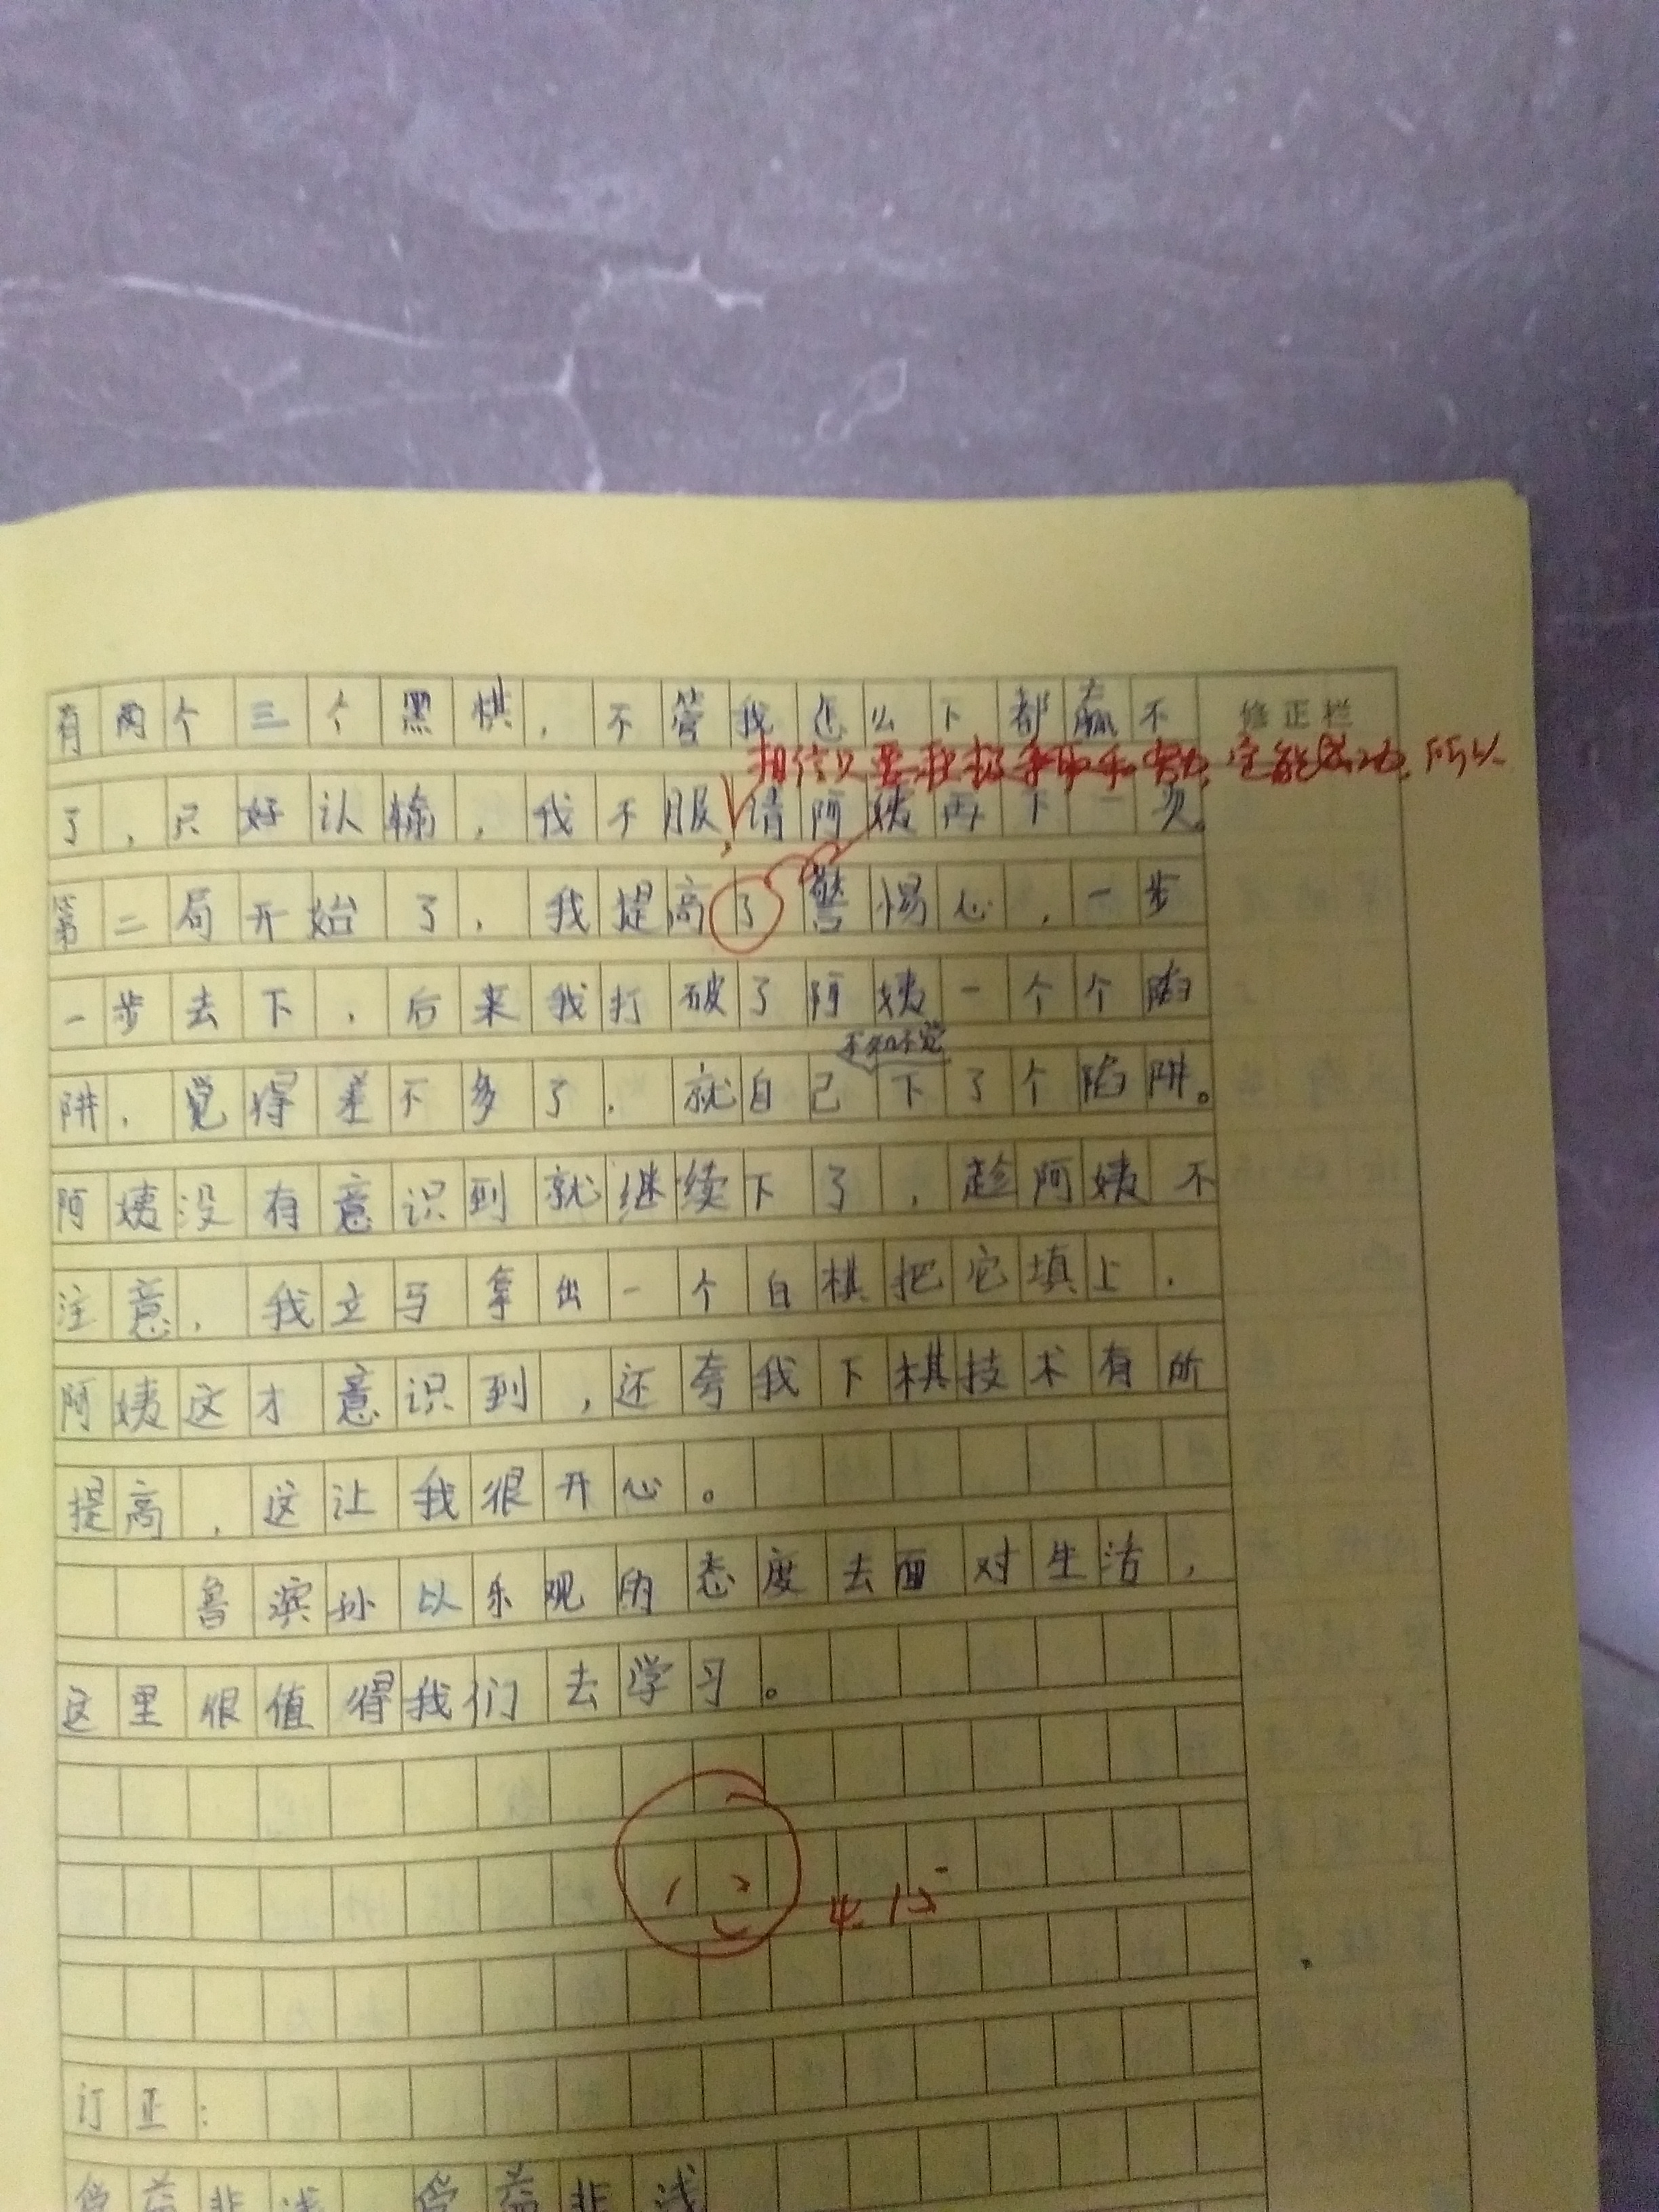 有两个三个黑棋，不管我怎么下都赢不
修正栏
相信只要积极争取和努力，定能成功，所以
了，只好认输，我不服，请阿姨再下一次。
第二局开始了，我提高了警惕心，一步
一步去下，后来我打破了阿姨一个个陷
不知不觉
阱，觉得差不多了，就自己下了个陷阱。
阿姨没有意识到就继续下了，趁阿姨不
注意，我立马拿出一个白棋把它填上，
阿姨这才意识到，还夸我下棋技术有所
提高，这让我很开心。
鲁滨孙以乐观的态度去面对生活，
这里很值得我们去学习。
4.15
订正：
受益非浅 受益非浅